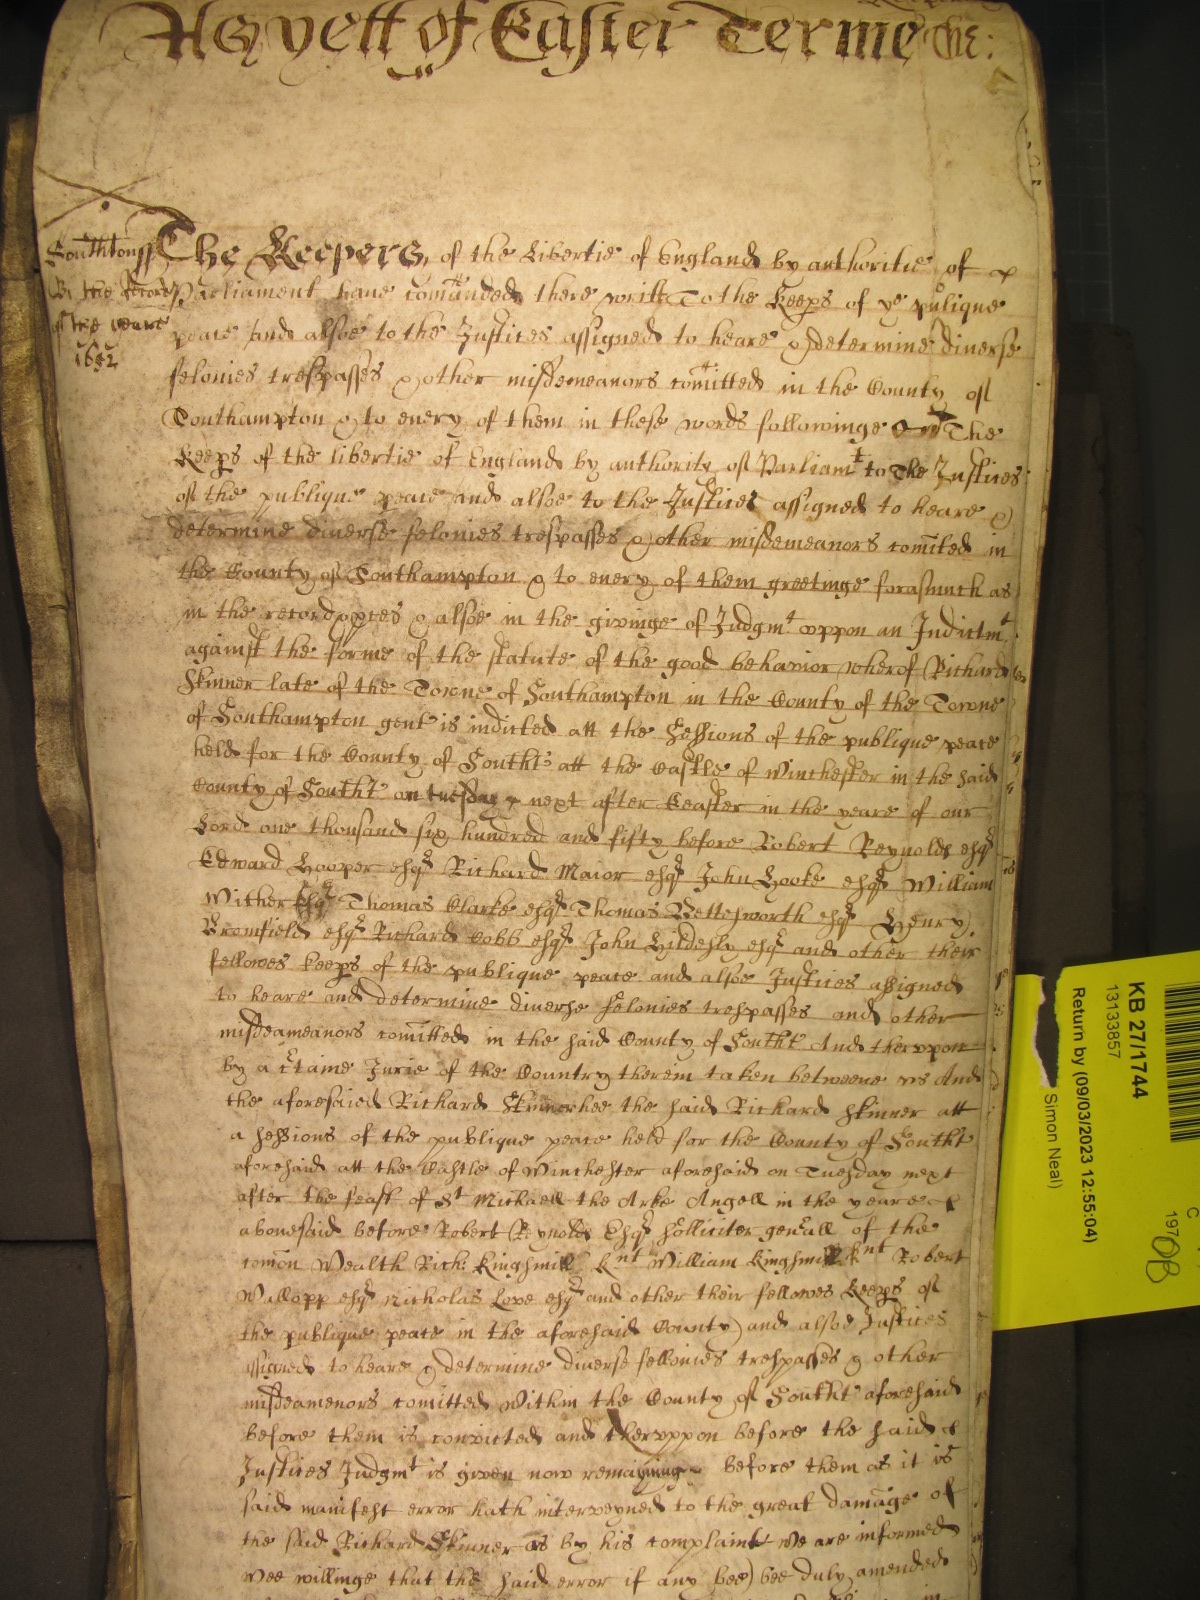 As yett of Easter Terme &c:
Southtonss
The Keepers of the Libertie of England by authoritie of
Parliament have comanded there writt To the Keeps of ye publique
of the yeare
1652
peace and alsoe to the Justices assigned to heare & determine diverse
felonies trespasses & other misdemeanors comitted in the County of
Southampton & to every of them in these words followinge The
Keeps of the libertie of England by authority of Parliamt to The Justices
of the publique peace and alsoe to the Justices assigned to heare &
determine diverse felonies trespasses & other misdemeanors comited in
the County of Southampton & to every of them greetinge forasmuch as
in the record & pces & alsoe in the givinge of Judgmt uppon an Indictmt
against the forme of the statute of the good behavior wherof Richard
Skinner late of the Towne of Southampton in the County of the Towne
of Southampton gent is indicted att the Sessions of the publique peace
held for the County of Southt att the Castle of Winchester in the said
County of Southt on tuesday next after Easter in the yeare of our
Lord one thousand six hundred and fifty before Robert Reynolds esqr
Edward Hooper esqr Richard Maior esqr John Hooke esqr William
Wither Esqr Thomas Clarke esqr Thomas Bettesworth esqr Henry
Bromfield esqr Richard Cobb esqr John Hildesly esqr and other their
fellowes keeps of the publique peace and alsoe Justices assigned
to heare and determine diverse felonies trespasses and other
misdeameanors comitted in the said County of Southt And theruppon
by a ctaine Jurie of the Country therein taken betweene us And
the aforesaied Richard Skinner hee the said Richard Skinner att
a sessions of the publique peace held for the County of Southt
aforesaid att the Castle of Winchester aforesaid on Tuesday next
after the feast of St Michaell the Arke Angell in the yeare
abovesaid before Robert Reynolds Esqr solliciter genrall of the
comon Wealth Rich: Kingsmill Knt William Kingsmill knt Robert
Wallopp esqr Nicholas Love esqr and other their fellowes Keeps of
the publique peace in the aforesaid County and alsoe Justices
assigned to heare & determine diverse fellonies trespasses & other
misdeamenors comitted within the County of Southt aforesaid
before them is convicted and theruppon before the said
Justices Judgmt is given now remayning before them as it is
said manifest error hath interveyned to the great damage of
the said Richard Skinner as by his complaint we are informed
wee willinge that the said error if any bee) bee duly amended
KB 27/1744
13133857
Return by (09/03/2023 12:55:04)
Simon Neal)